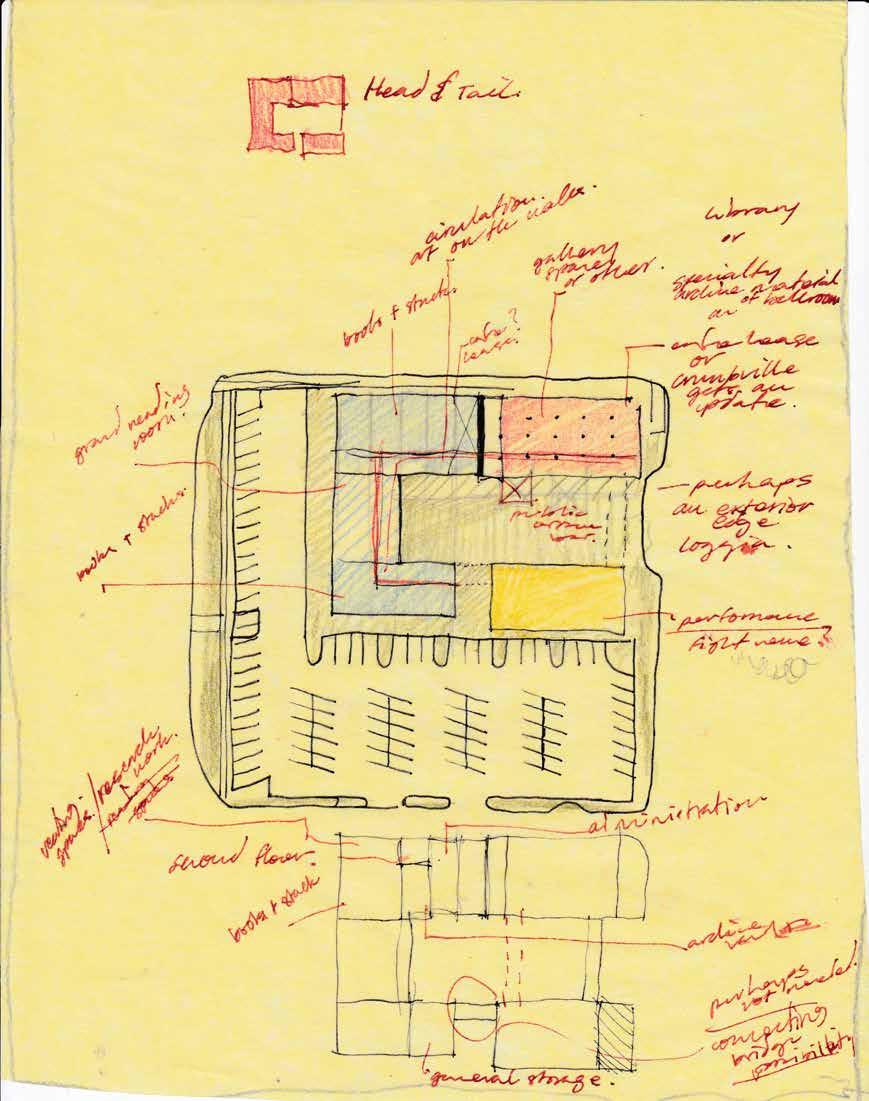 Head & Tail.
circulation.
art on the walls.
gallery
spaces
or other.
library
or
specialty
archive material
or ballroom
entre lease
or
gets an
update.
books + stacks.
entre?
lease?
grand reading
room.
books + stacks.
perhaps
an exterior
edge
loggia.
public
performance
right venue?
reading
spaces./research
work.
second floor.
administration
books + stack
archive
perhaps
not needed.
connecting
bridge
possibility
general storage.